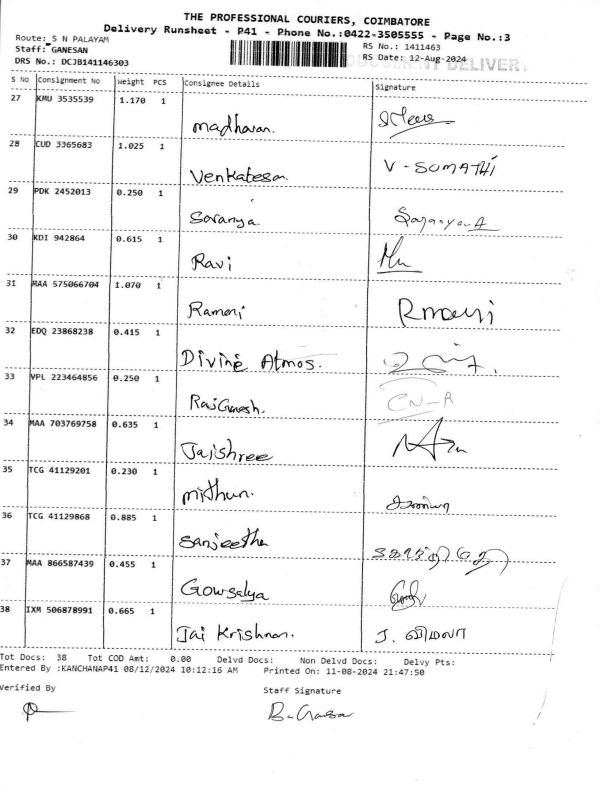 THE PROFESSIONAL COURIERS, COIMBATORE
Delivery Runsheet - P41 - Phone No.:0422-3505555 - Page No.:3
Route: S N PALAYAM
RS No.: 1411463
Staff: GANESAN
DOCUMENT DELIVERY
RS Date: 12-Aug-2024
DRS No.: DCJB141146303
S No Consignment No Weight PCS Consignee Details Signature
27 KMU 3535539 1.170 1 madhavan.
28 CUD 3365683 1.025 1 Venkatesan. V - SUMATHi
29 PDK 2452013 0.250 1 Saranya.
30 KDI 942864 0.615 1 Ravi
31 MAA 575066704 1.070 1 Ramani Rmani
32 EDQ 23868238 0.415 1 Divine Atmos.
33 VPL 223464856 0.250 1 RajGanesh. CN-R
34 MAA 703769758 0.635 1 Jaishree
35 TCG 41129201 0.230 1 mithun.
36 TCG 41129868 0.885 1 Sanjeetha
37 MAA 866587439 0.455 1 Gowsalya
38 IXM 506878991 0.665 1 Jai Krishnan. J. விமலா
Tot Docs: 38 Tot COD Amt: 0.00 Delvd Docs: Non Delvd Docs: Delvy Pts:
Entered By :KANCHANAP41 08/12/2024 10:12:16 AM Printed On: 11-08-2024 21:47:50
Verified By Staff Signature